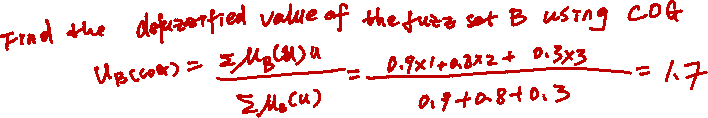 Find the defuzzified value of the fuzz set B using COG
U_B(COG) = Σ μ_B(u) u / Σ μ_B(u) = 0.9×1+0.8×2+ 0.3×3 / 0.9+0.8+0.3 = 1.7